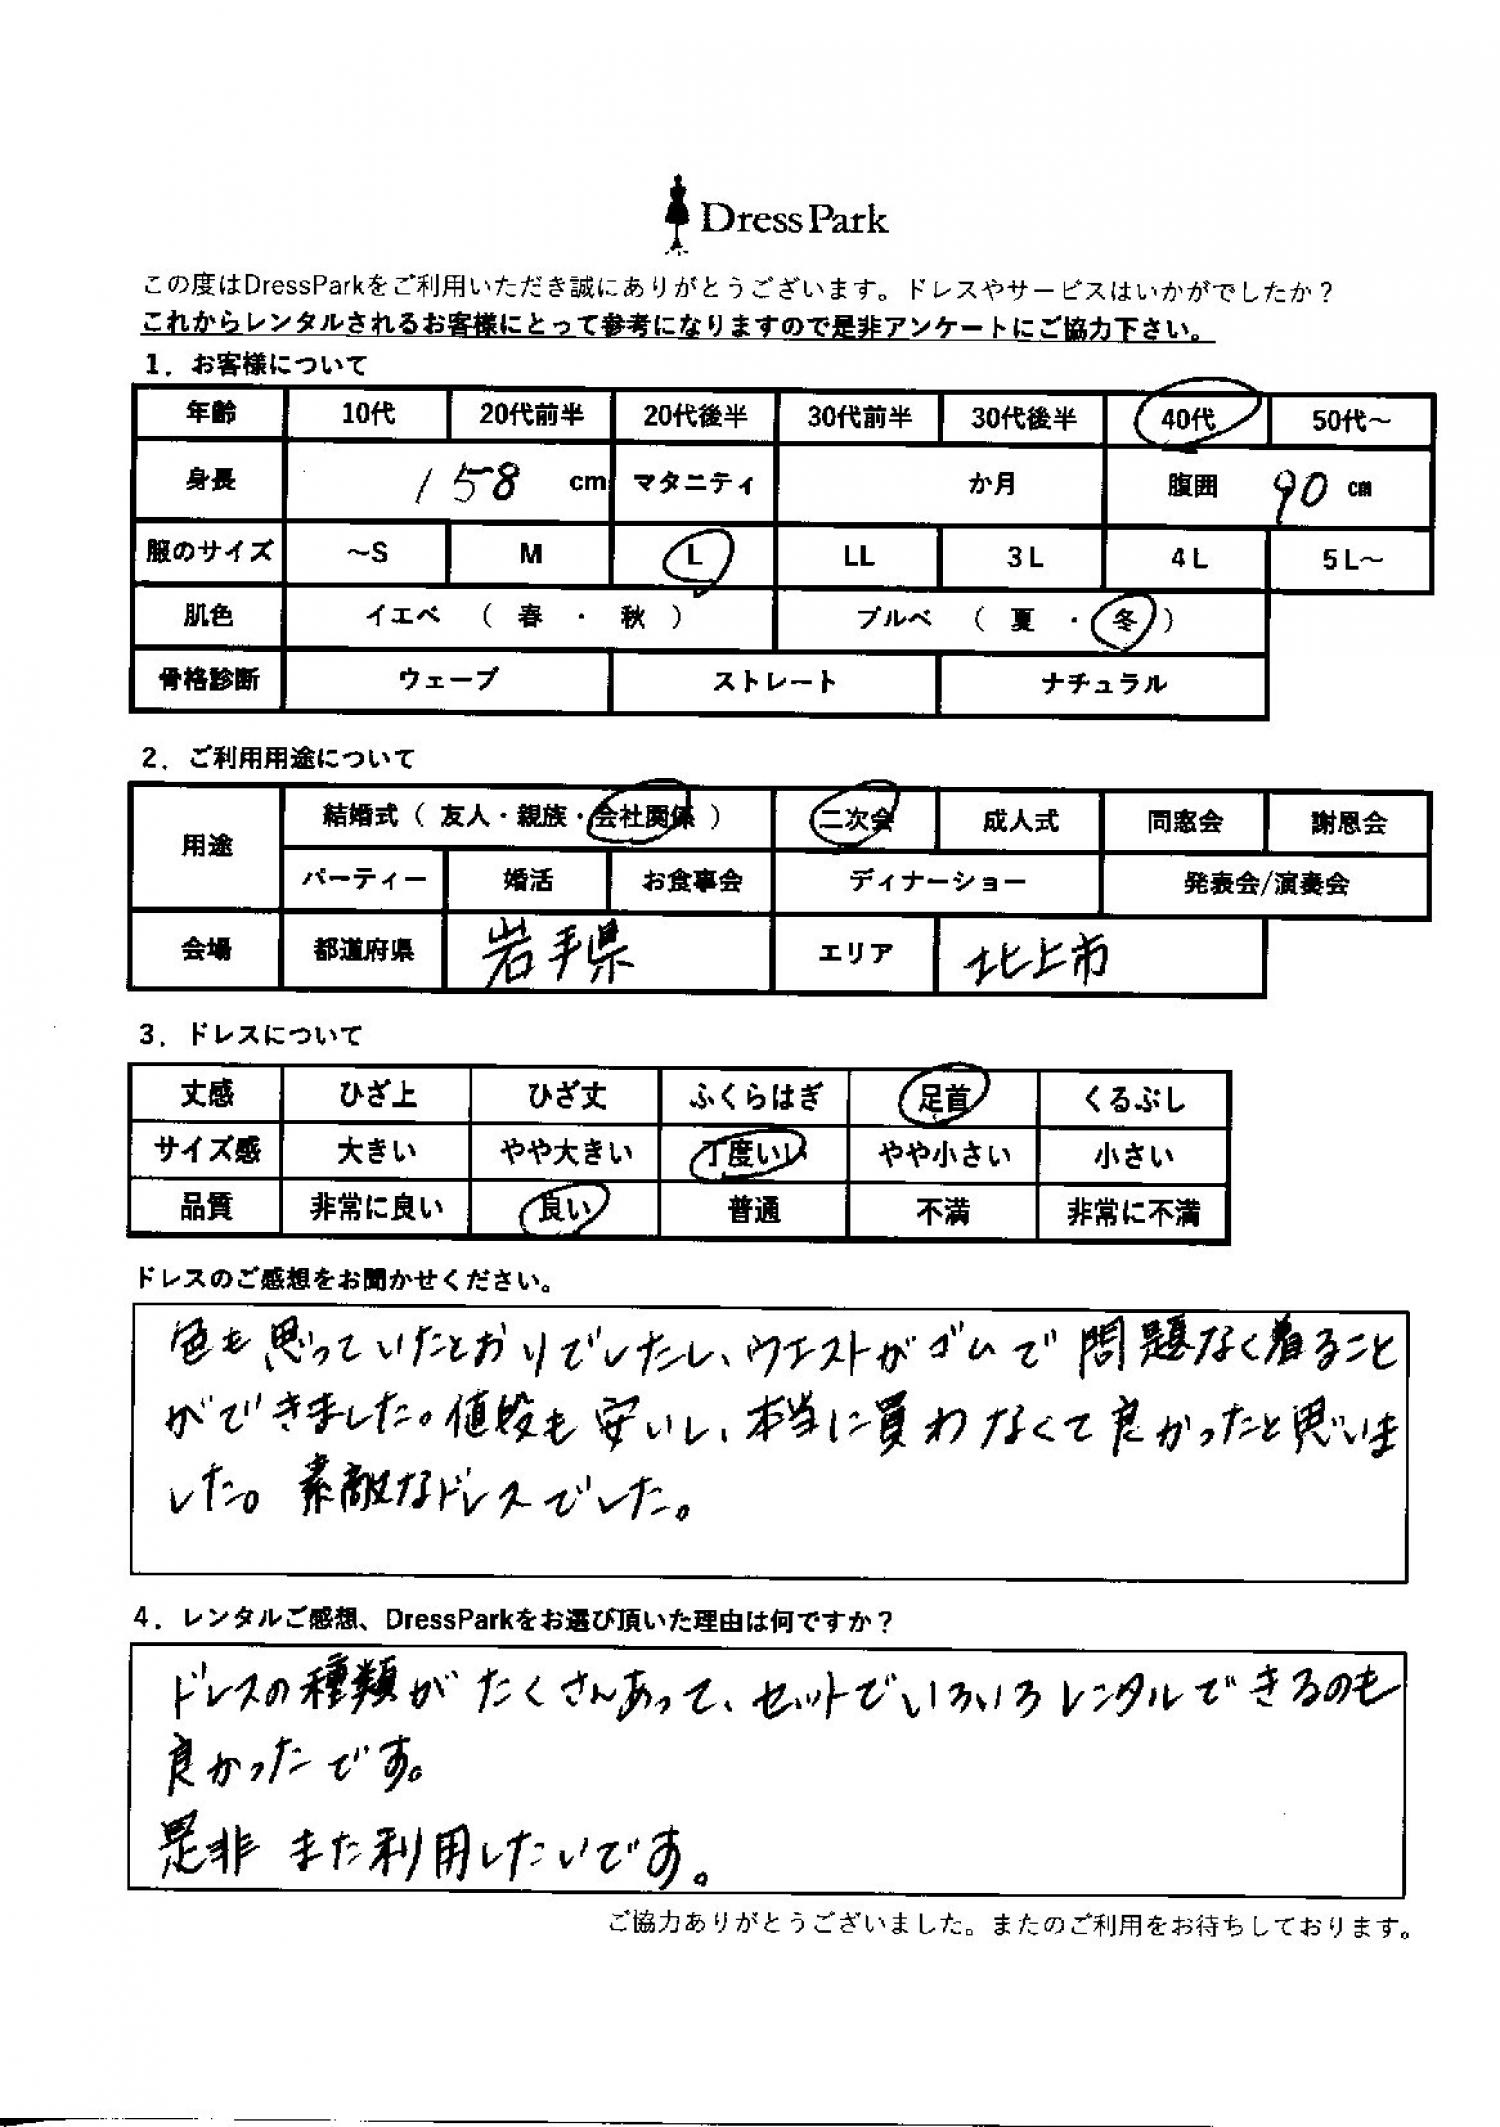 DressPark
この度はDressParkをご利用いただき誠にありがとうございます。ドレスやサービスはいかがでしたか？
これからレンタルされるお客様にとって参考になりますので是非アンケートにご協力下さい。
1．お客様について
年齢 10代 20代前半 20代後半 30代前半 30代後半 40代 50代～
身長 158 cm マタニティ か月 腹囲 90 cm
服のサイズ ～S M L LL 3L 4L 5L～
肌色 イエベ （ 春 ・ 秋 ） ブルベ （ 夏 ・ 冬 ）
骨格診断 ウェーブ ストレート ナチュラル
2．ご利用用途について
用途 結婚式（ 友人・親族・会社関係 ） 二次会 成人式 同窓会 謝恩会
パーティー 婚活 お食事会 ディナーショー 発表会/演奏会
会場 都道府県 岩手県 エリア 北上市
3．ドレスについて
丈感 ひざ上 ひざ丈 ふくらはぎ 足首 くるぶし
サイズ感 大きい やや大きい 丁度いい やや小さい 小さい
品質 非常に良い 良い 普通 不満 非常に不満
ドレスのご感想をお聞かせください。
色も思っていたとおりでしたし、ウエストがゴムで問題なく着ること
ができました。値段も安いし、本当に買わなくて良かったと思いま
した。素敵なドレスでした。
4．レンタルご感想、DressParkをお選び頂いた理由は何ですか？
ドレスの種類がたくさんあって、セットでいろいろレンタルできるのも
良かったです。
是非また利用したいです。
ご協力ありがとうございました。またのご利用をお待ちしております。